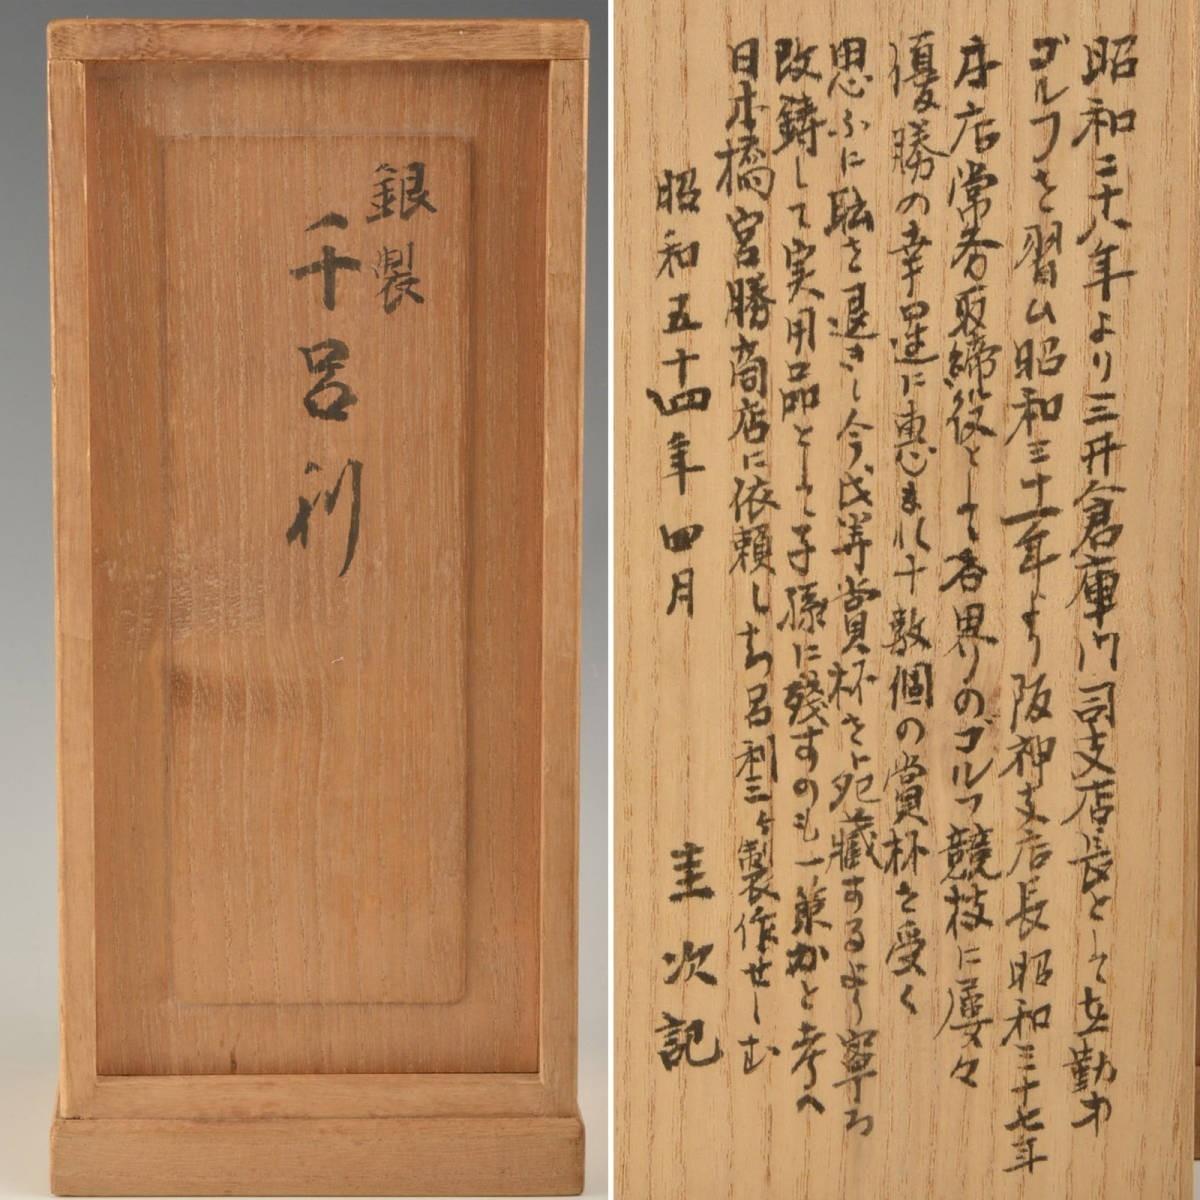 銀製
千呂利
昭和二十八年より三井倉庫門司支店長として在勤中
ゴルフを習ふ昭和三十一年より阪神支店長昭和三十七年
本店常務取締役として各界のゴルフ競技に屡々
優勝の幸運に恵まれ十数個の賞杯を受く
思ふに職を退きし今、此等賞杯を死藏するより寧ろ
改鋳して実用品として子孫に残すのも一策かと考へ
日本橋宮勝商店に依頼しち呂利三ヶ製作せしむ
昭和五十四年四月
圭次記